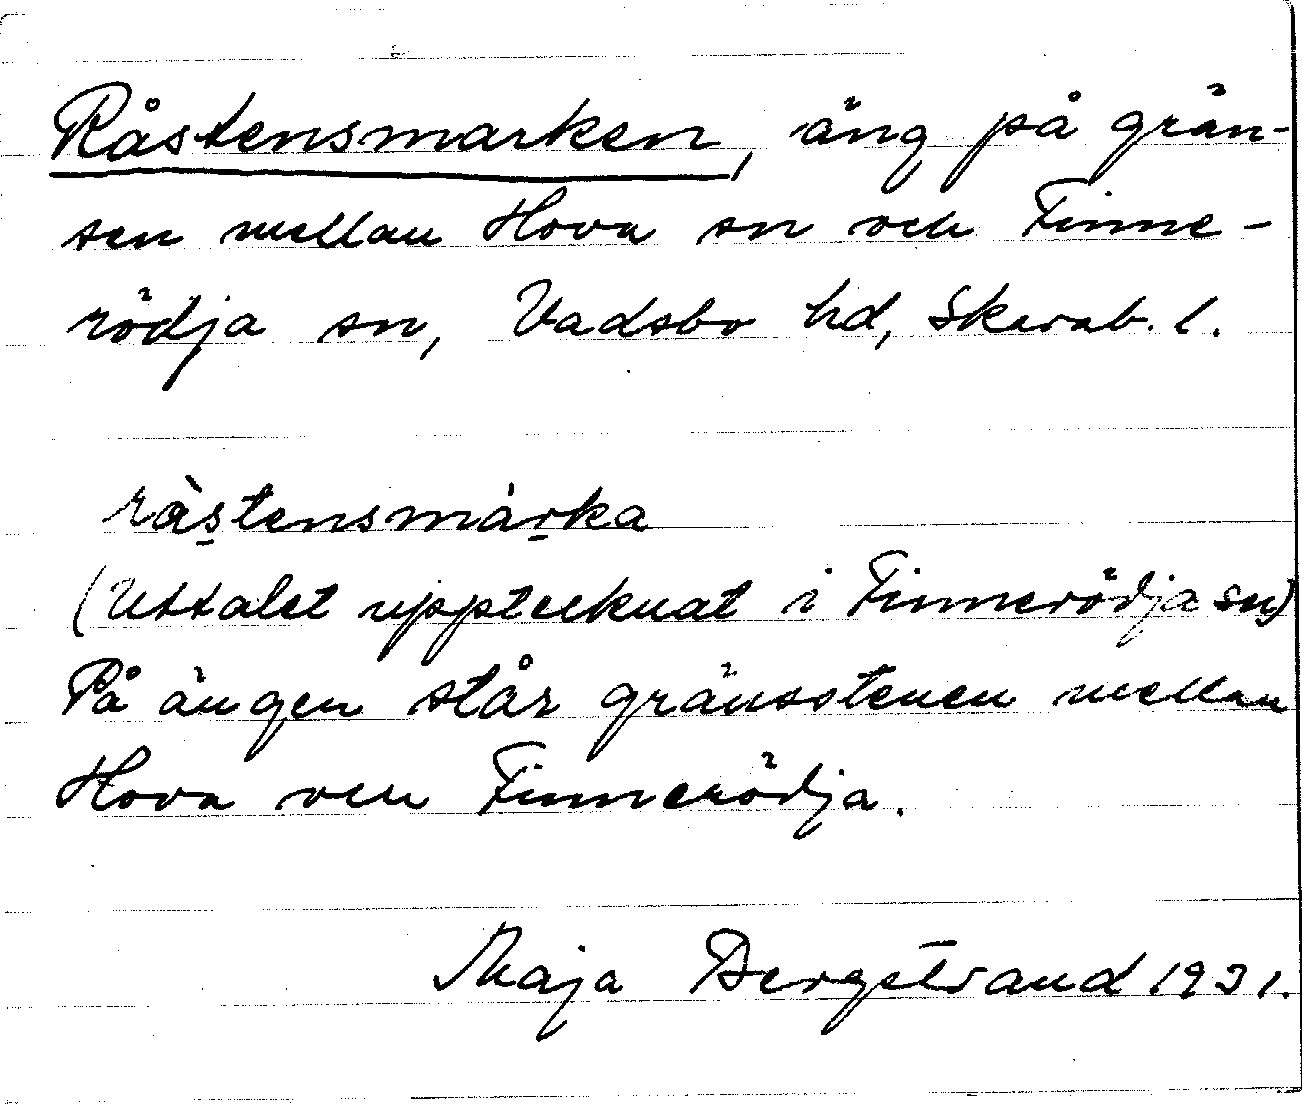 Råstensmarken, äng på grän-
sen mellan Hova sn och Finne-
rödja sn, Vadsbo hd, Skarab. l.
ràs̱tensmáṟka
(Uttalet upptecknat i Finnerödja sn)
På ängen står gränsstenen mellan
Hova och Finnerödja.
Maja Bergstrand 1931.